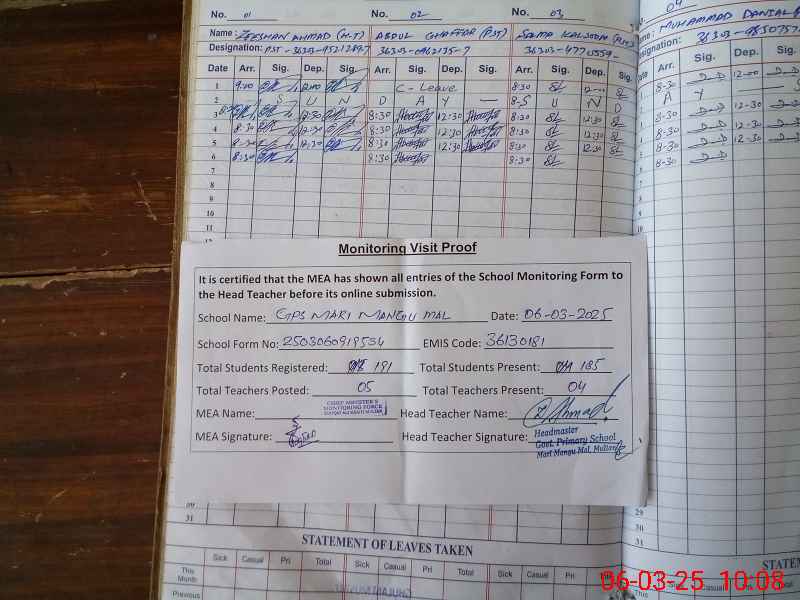 No. 01 No. 02 No. 03 04
Name: ZEESHAN AHMAD (H.T) ABDUL GHAFFAR (PST) SALMA KALSOOM MUHAMMAD DANIAL
Designation: PST-36303- 36303-0962135-7 36303-4770559-
Date Arr. Sig. Dep. Sig. Arr. Sig. Dep. Sig. Arr. Sig. Dep. Sig. Arr. Sig. Dep.
1 9:00 C-Leave 8:30 12-00 8-30 12-00
2 S U N D A Y — S U N D A Y — S
3 8:30 12:30 8:30 12:30 8:30 12:30 8-30 12-30
4 8:30 12:30 8:30 12:30 8:30 12:30 8-30 12-30
5 8:30 12:30 8:30 12:30 8:30 12:30 8-30 12-30
6 8:30 8:30 8:30 8-30
7
8
9
10
11
12
Monitoring Visit Proof
It is certified that the MEA has shown all entries of the School Monitoring Form to
the Head Teacher before its online submission.
School Name: GPS MARI MANGU MAL Date: 06-03-2025
School Form No: 2503060919534 EMIS Code: 36130181
Total Students Registered: 191 Total Students Present: 185
Total Teachers Posted: 05 Total Teachers Present: 04
MEA Name: CHIEF MINISTER'S Head Teacher Name:
MONITORING FORCE
MEA Signature: Head Teacher Signature: Headmaster
Govt. Primary School
Mari Mangu Mal, Multan
30
31
29
30
31
STATEMENT OF LEAVES TAKEN
Sick Casual Pri Total Sick Casual Pri Total Sick Casual Pri Total
This
Month
Previous
This
Month
06-03-25 10:08